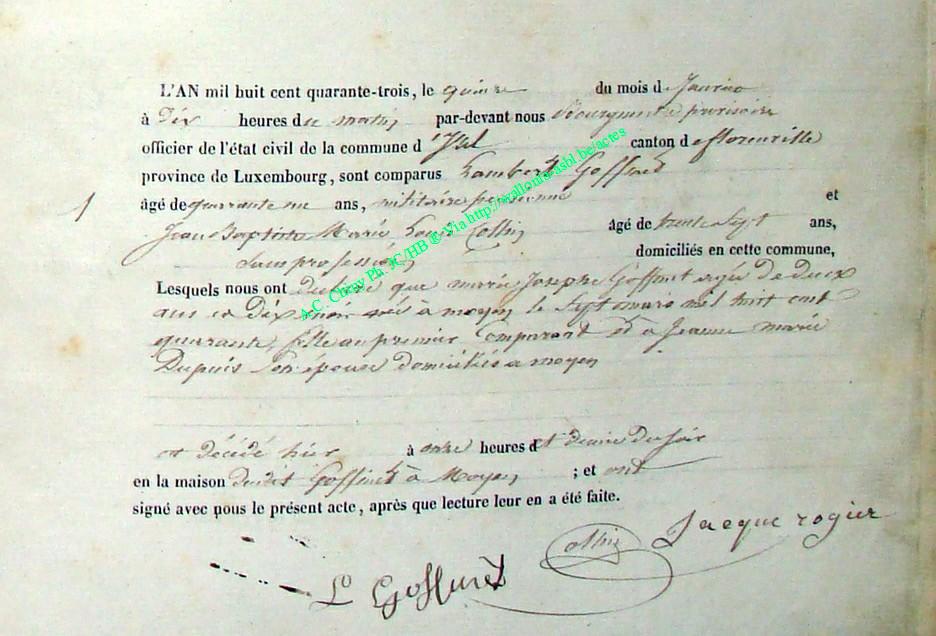 L'AN mil huit cent quarante-trois, le quinze du mois d Janvier
à Dix heures du matin par-devant nous Bourgmestre provisoire
officier de l'état civil de la commune d'Izel canton de florenville
province de Luxembourg, sont comparus Lambert Goffinet
1 âgé de quarante ans, militaire pensionné et
Jean Baptiste Marie Louis Collin âgé de trente Sept ans,
Sans profession domiciliés en cette commune,
Lesquels nous ont declaré que marie Joseph Goffinet agée de deux
ans et Dix mois née à moyen le Sept mars mil huit cent
quarante, fille au premier Comparant et a Jeanne marie
Dupuis Son épouse domiciliés a moyen
est décédé hier à onze heures et demie du soir
en la maison dudit Goffinet à Moyen ; et ont
signé avec nous le présent acte, après que lecture leur en a été faite.
Jacque rogier
Collin
L Goffinet
A.C. Chiny Ph. JC/HB ® Via http://wallonia-asbl.be/actes